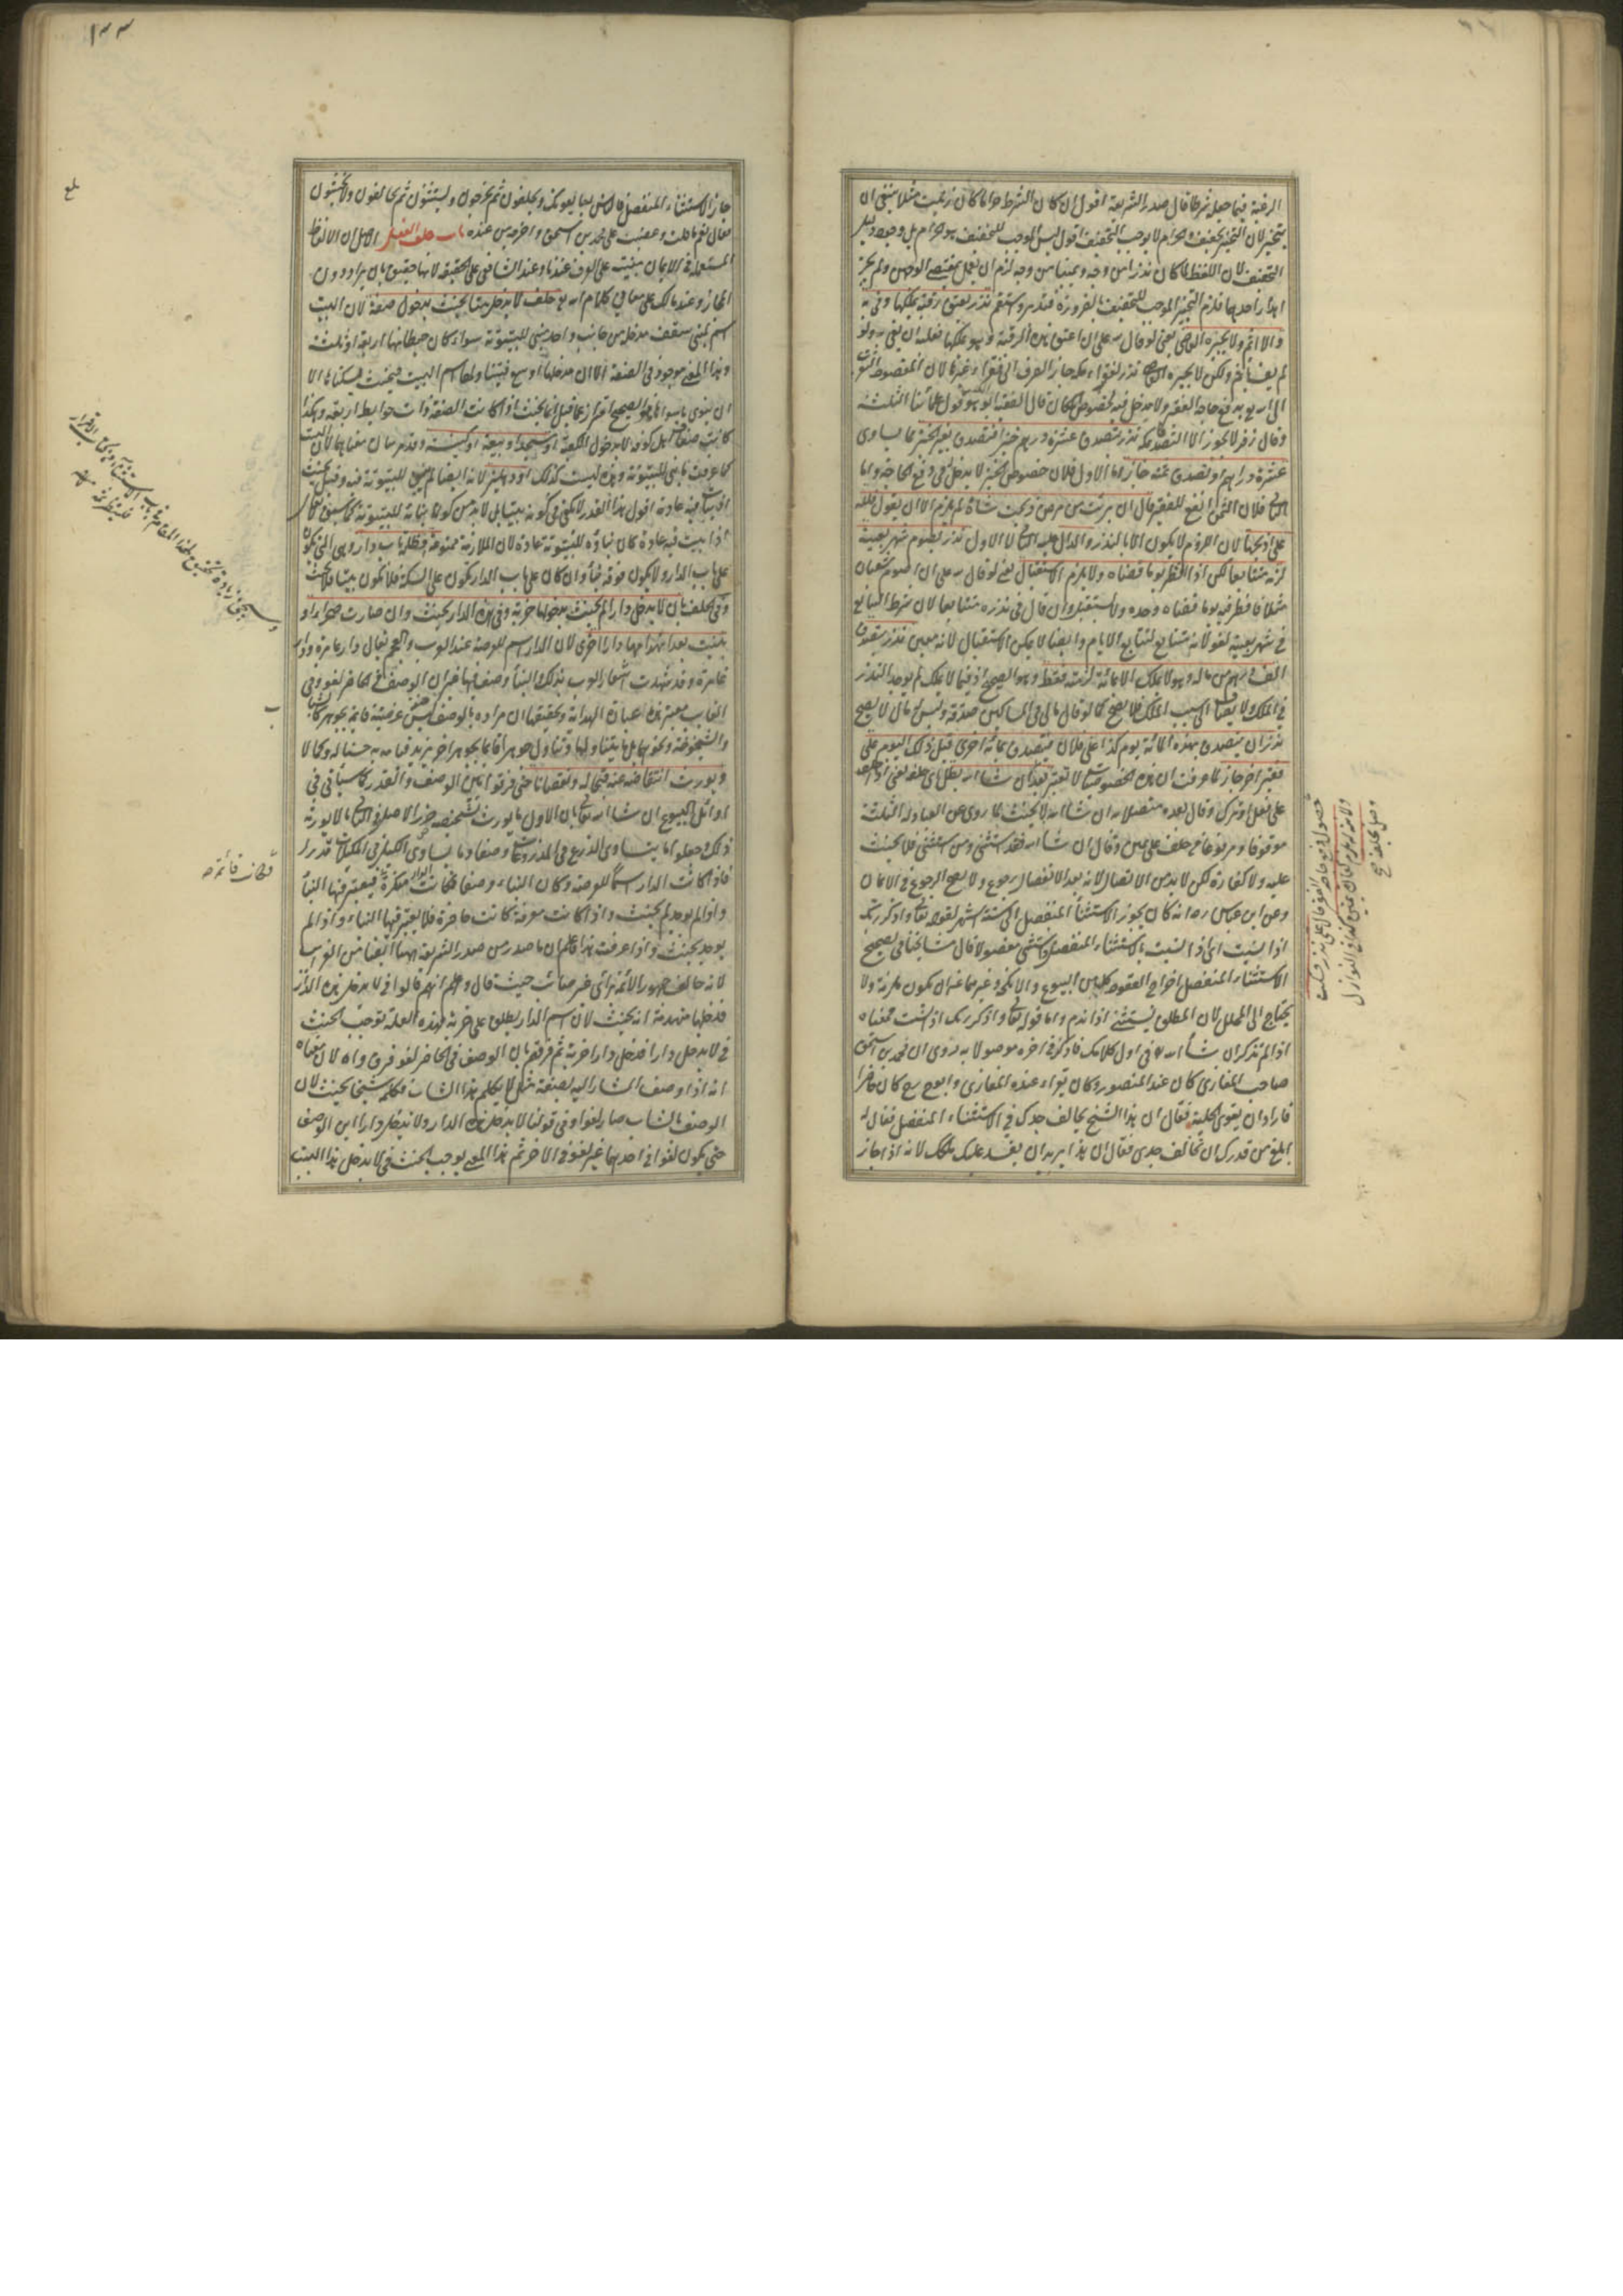 الرغبة فيما جعل شرطا قال صدر الشريعة اقول ان كان الشرط حراما كان زنيت مثلا ينبغي ان
لا يتخير لان التخيير تخفيف والحرام لا يوجب التخفيف اقول ليس الموجب للتخفيف هو الحرام بل وجود دليل
التخفيف لان اللفظ لما كان نذرا من وجه ويمينا من وجه لزم ان يعمل بمقتضى الوجهين ولم يجز
اهدار احدهما فلزم التخيير الموجب للتخفيف بالضرورة فتدبر واستقم نذر بعتق رقبة يملكها وفى به
والا اثم ولا يجبره القاضي يعني لو قال لله علي ان اعتق هذه الرقبة وهو يملكها فعليه ان يفي به ولو
لم يف يأثم ولكن لا يجبره القاضي نذر لفقراء مكة جاز الصرف الى فقراء غيرها لان المقصود التقرب
الى الله بدفع حاجة الفقير ولا مدخل فيه لخصوص المكان قال الفقيه ابو الليث وهو قول علمائنا الثلثة
وقال زفر لا يجوز الا التصدق بمكة نذر بتصدق عشرة دراهم خبزا فتصدق بغير الخبز مما يساوي
عشرة دراهم او تصدق بثمنه جاز اما الاول فلان خصوص الخبز لا يدخل في دفع الحاجة واما
الثاني فلان الثمن انفع للفقير قال ان برئت من مرضي ذبحت شاة لم يلزم الا ان يقول فلله
علي اذبحها لان اللزوم لا يكون الا بالنذر والدال عليه الثاني لا الاول نذر بصوم شهر بعينه
لزمه متتابعا لكن اذا افطر يوما قضاه ولا يلزم الاستقبال يعني لو قال لله علي ان اصوم شعبان
مثلا فافطر فيه يوما قضاه وحده ولا يستقبل وان قال في نذره متتابعا لان شرط التتابع
في شهر بعينه لغو لانه متتابع لتتابع الايام وايضا لا يمكن الاستقبال لانه معين نذر بتصدق
الف درهم من ماله وهو لا يملك الا مائة لزمته فقط وهو الصحيح اذ فيما لا يملك لم يوجد النذر
في الملك ولا مضافا الى سبب الملك فلا يصح كما لو قال مالي في المساكين صدقة وليس له مال لا يصح
نذر ان يتصدق بهذه المائة يوم كذا على فلان فتصدق بمائة اخرى قبل ذلك اليوم على
فقير اخر جاز لما عرفت ان هذه الخصوصيات لا تعتبر بعد ان شاء الله بطل اي حلفه يعني اذا حلف
على فعل او ترك وقال بعده متصلا به ان شاء الله لا يحنث لما روي عن العبادلة الثلثة
موقوفا ومرفوعا من حلف على يمين وقال ان شاء الله فقد استثنى ومن استثنى فلا حنث
عليه ولا كفارة لكن لا بد من الاتصال لانه بعد الانفصال رجوع ولا يصح الرجوع في الايمان
وعن ابن عباس رضه انه كان يجوز الاستثناء المنفصل الى ستة اشهر لقوله تعالى واذكر ربك
اذا نسيت اي اذا نسيت بالاستثناء المنفصل فاستثنى مفصولا قال مشايخنا في تصحيح
الاستثناء المنفصل اخراج العقود كلها من البيوع والانكحة وغيرهما عن ان يكون ملزمة ولا
يحتاج الى المحلل لان المطلق يستثني اذا ندم واما قوله تعالى واذكر ربك اذا نسيت فمعناه
اذا لم تذكر ان شاء الله في اول كلامك فاذكره في اخره موصولا به روي ان محمد بن اسحق
صاحب المغازي كان عند المنصور وكان يقرأ عنده المغازي وابو ح رح كان حاضرا
فاراد ان يغري الخليفة فقال ان هذا الشيخ يخالف جدك في الاستثناء المنفصل فقال له
ابلغ من قدرك ان تخالف جدي فقال ان هذا يريد ان يفسد عليك ملكك لانه اذا جاز
جاز الاستثناء المنفصل فالناس يبايعونك ويحلفون ثم يخرجون ويستثنون ثم يخالفون ولا يحنثون
فقال نعم ما قلت وغضب على محمد بن اسحق واخرجه من عنده باب حلف الفعل الاصل ان الالفاظ
المستعملة في الايمان مبنية على العرف عندنا وعند الشافعي على الحقيقة لانها حقيق بان يراد دون
المجاز وعند مالك على معاني كلام الله تع حلف لا يدخل بيتا يحنث بدخول صفة لان البيت
اسم لمبنى مسقف مدخله من جانب واحد بني للبيتوتة سواء كان حيطانها اربعة او ثلثة
وهذا المعنى موجود في الصفة الا ان مدخلها اوسع فيتناولها اسم البيت فيحنث بسكناها الا
ان ينوي ما سواها هو الصحيح احتراز عما قيل انما يحنث اذا كانت الصفة ذات حوايط اربعة وهكذا
كانت صفاف اهل كوفة لا بدخول الكعبة او مسجد او بيعة او كنيسة وقد مر بيان معناهما لان البيت
كما عرفت ما بني للبيتوتة وهذه ليست كذلك او دهليز لانه ايضا لم يبن للبيتوتة فيه وقيل يحنث
اذ يبات فيه عادة اقول هذا القدر لا يكفي في كونه بيتا بل لا بد من كونه بناية للبيتوتة كما سبق
اذا بيت فيه عادة كان بناؤه للبيتوتة عادة لان الملازمة ممنوعة وظلة باب دار وهي التي تكون
على باب الدار ولا يكون فوقه بناء وان كان على باب الدار يكون على السكة فلا يكون بيتا فلا يحنث
وفي الحلف بان لا يدخل دارا لم يحنث بدخولها خربة وفي هذه الدار يحنث وان صارت صحراء او
بنيت بعد انهدامها دارا اخرى لان الدار اسم للعرصة عند العرب والعجم يقال دار عامرة ودار
غامرة وقد شهدت اشعار العرب بذلك والبناء وصف فيها غير ان الوصف في الحاضر لغو وفي
الغايب معتبر هذه عبارة الهداية وتحقيقها ان مراده بالوصف ليس صفة عرضية قائمة بجوهر كالشباب
والشيخوخة ونحوهما بل ما يتناولها ويتناول جوهرا قائما بجوهر اخر يزيد قيامه به حسنا له وكمالا
ويورث انتقاصه عنه قبحا له ونقصانا حتى فرقوا بين الوصف والقدر كما سيأتي في
اوائل البيوع ان شاء الله تعالى بان الاول ما يورث تشخيصه ضرر الاصل والثاني ما لا يورثه
ذلك وجعلوا ما يتساوى الذرع في المذروعات وصفا وما يساوي الكيل في المكيلات قدرا
فاذا كانت الدار اسما للعرصة وكان البناء وصفا فان كانت الدار منكرة فيعتبر فيها البناء
واذا لم يوجد لم يحنث واذا كانت معرفة كانت حاضرة فلا يعتبر فيها البناء واذا لم
يوجد يحنث واذا عرفت هذا فاعلم ان ما صدر من صدر الشريعة ههنا ايضا من الغرائب
لانه خالف جمهور الائمة برأي غير صائب حيث قال واعلم انهم قالوا في لا يدخل هذه الدار
فدخلها منهدمة انه يحنث لان اسم الدار يطلق على خربة فهذه العلة توجب الحنث
في لا يدخل دارا فدخل دارا خربة ثم فرقهم بان الوصف في الحاضر لغو فرق واه لان معناه
انه اذا وصف المشار اليه بصفة مثل لا يكلم هذا الشاب فكلمه شيخا يحنث لان
الوصف بالشاب صار لغوا وفي قولنا لا يدخل هذه الدار ولا يدخل دارا اين الوصف
حتى يكون لغوا في احدهما غير لغو في الاخر ثم هذا المعنى يوجب الحنث في لا يدخل هذا البيت